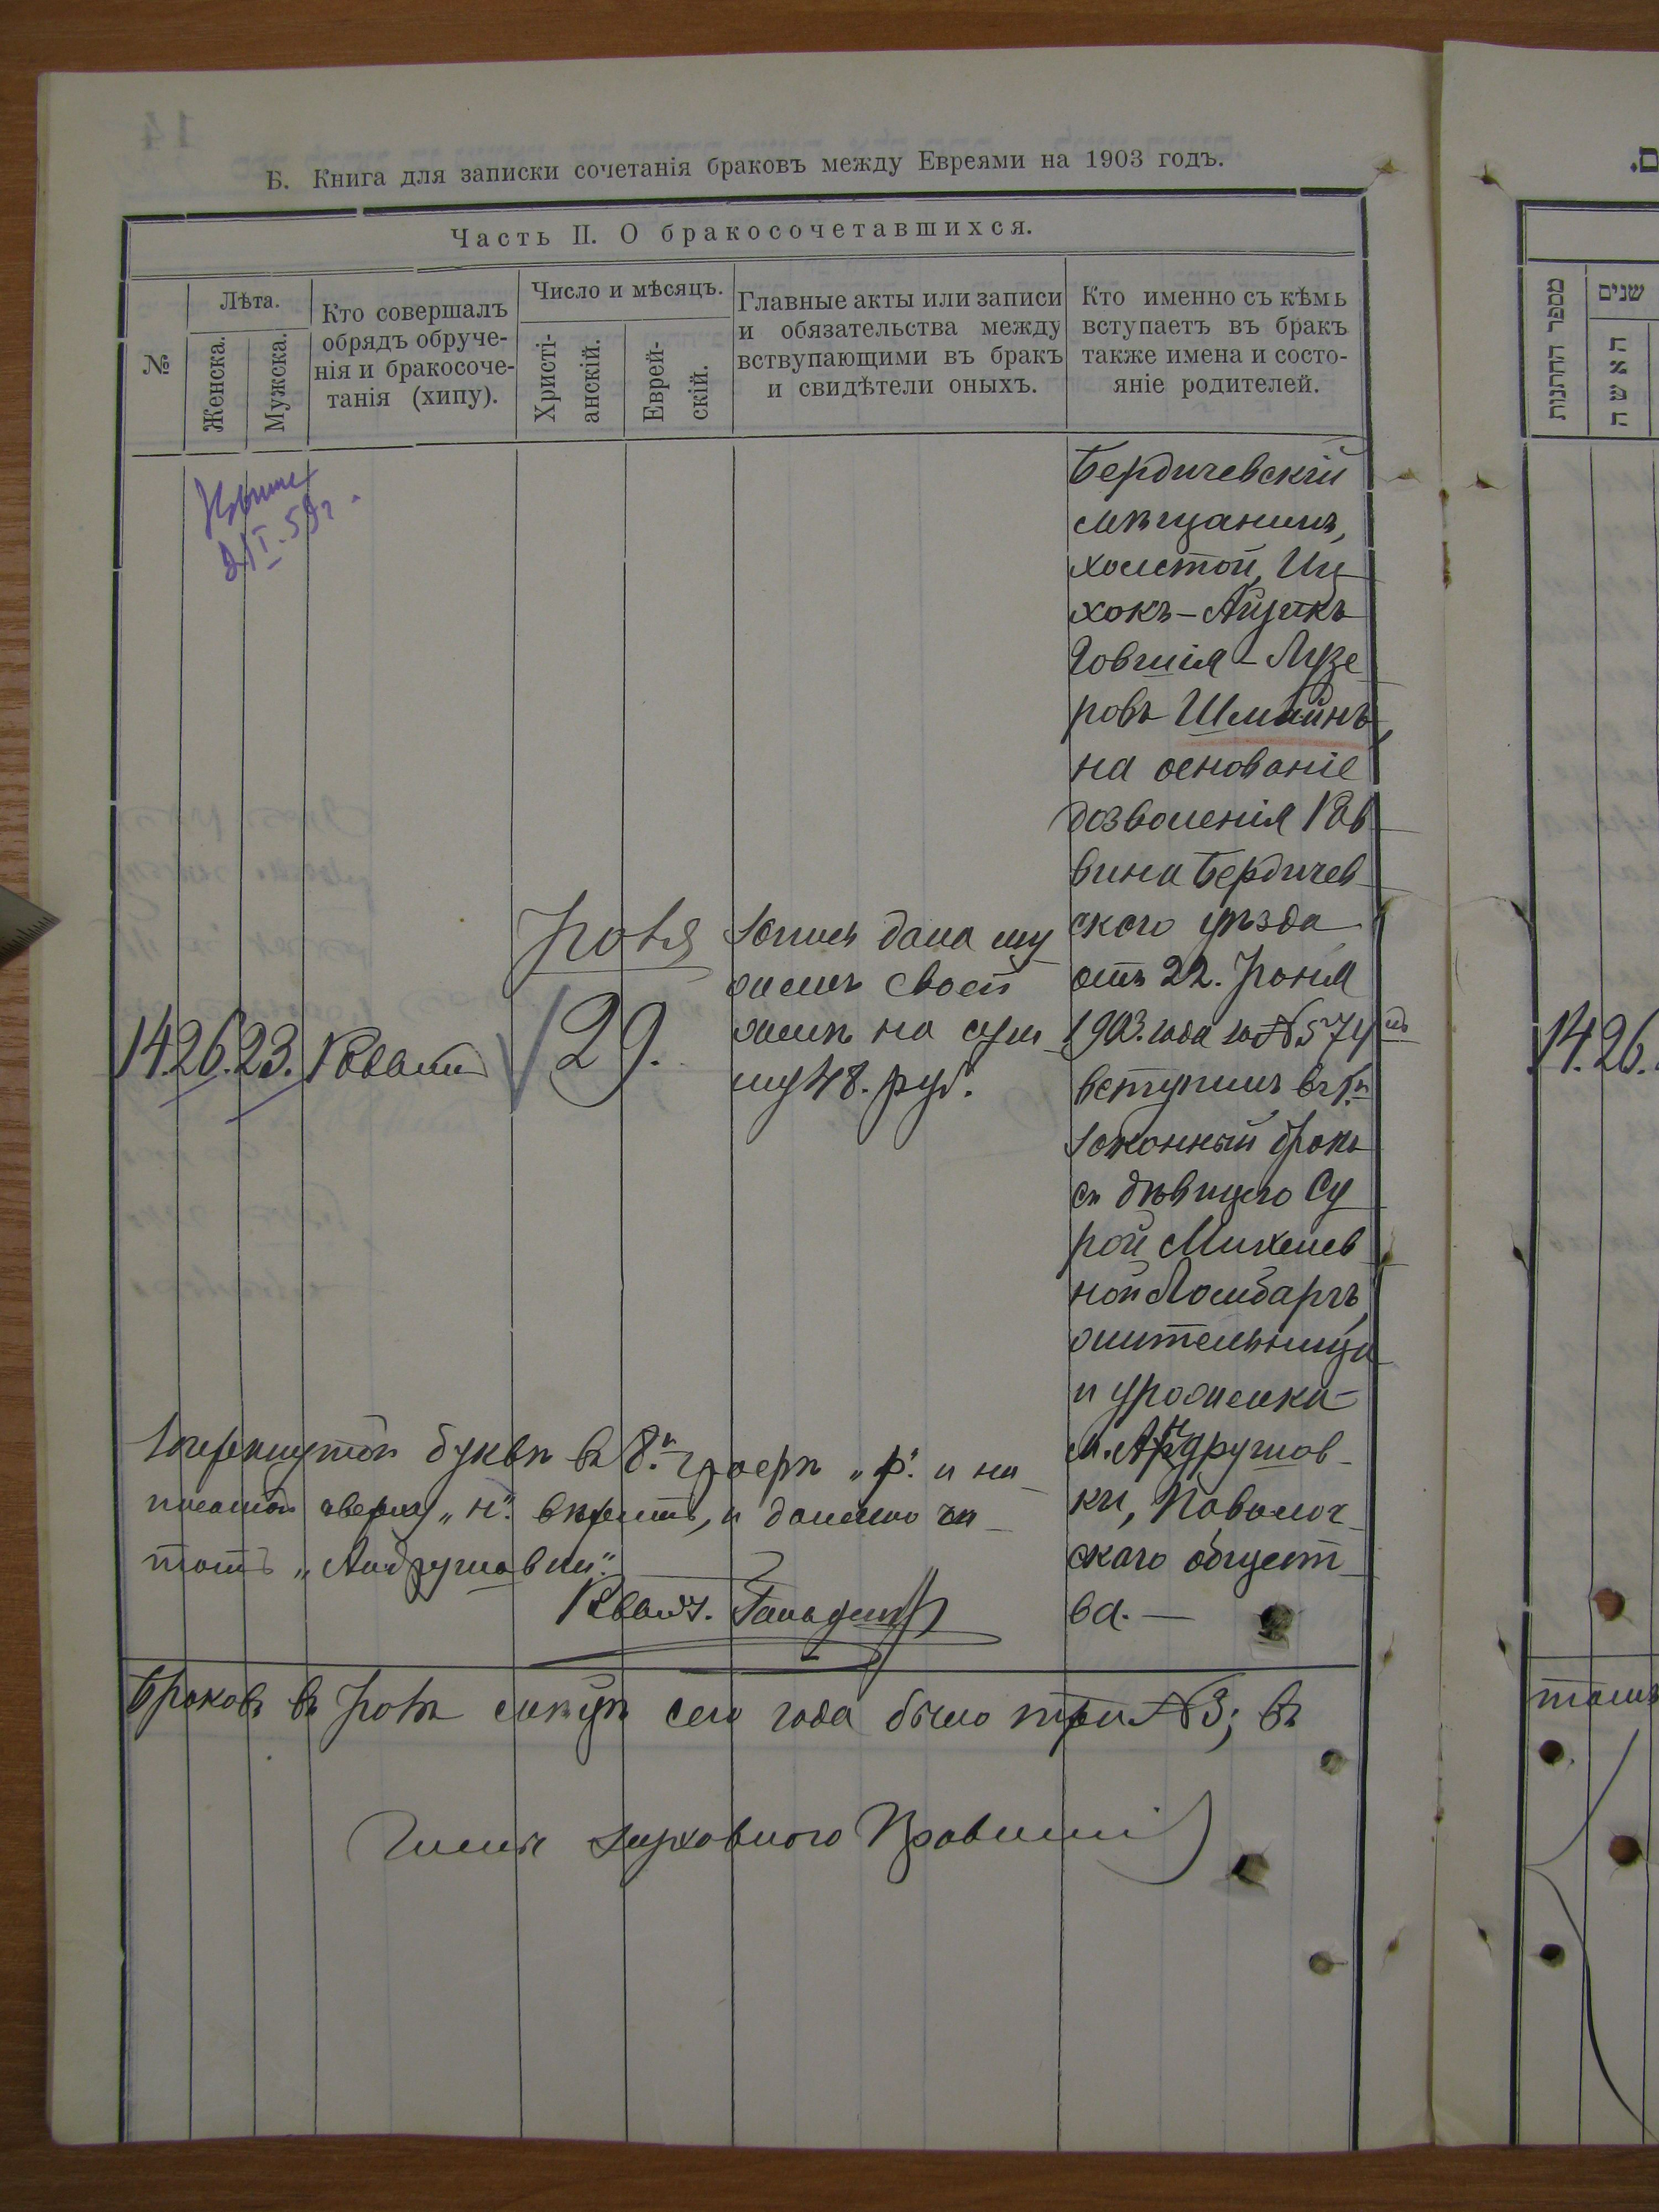 Б. Книга для записки сочетанія браковъ между Евреями на 1903 годъ.
Часть II. О бракосочетавшихся.
№
Лѣта.
Женска.
Мужска.
Кто совершалъ
обрядъ обруче-
нія и бракосоче-
танія (хипу).
Число и мѣсяцъ.
Христі-
анскій.
Еврей-
скій.
Главные акты или записи
и обязательства между
вствупающими въ бракъ
и свидѣтели оныхъ.
Кто именно съ кѣмъ
вступаетъ въ бракъ
также имена и состо-
яніе родителей.
21 I-59 г.
14. 26. 23.
29.
Запись дана му
жемъ своей
женѣ на сум
му 48. руб.
Бердичевскій
мѣщанинъ,
холстой, Иц
хокъ-Айзикъ
Іовшія-Лузе
ровъ Шмайнъ,
на основаніе
дозволенія Рав
вина Бердичев
скаго уѣзда
отъ 22. Іюня
1903. года за № 574
вступилъ въ 1.й
законный бракъ
съ дѣвицею Су
рой Михелев
ной Ломбаргъ,
жительница
и уроженка
м. Андрушов-
ки, Паволоч-
скаго общест-
ва. —
Зачеркнутой буквѣ въ 8.й графѣ „р“. и на-
писаной сверху „н“. вѣрить, и должно чи-
тать „Андрушовки“.
Раввинъ.
Браковъ въ Іюнѣ мѣсяцѣ сего года было три № 3; въ
Члены Духовнаго Правленія
14
ם.
מספר החתנות
שנים
האשה
14. 26.